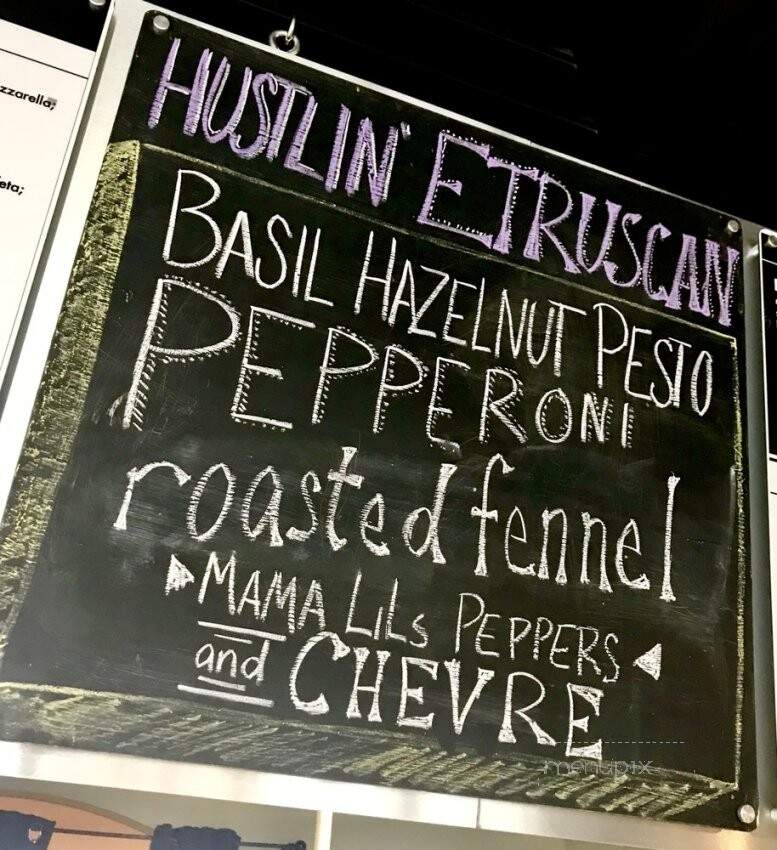 zzarella;
eta;
HUSTLIN' ETRUSCAN
BASIL HAZELNUT PESTO
PEPPERONI
roasted fennel
MAMA LILs PEPPERS
and CHEVRE
menupix